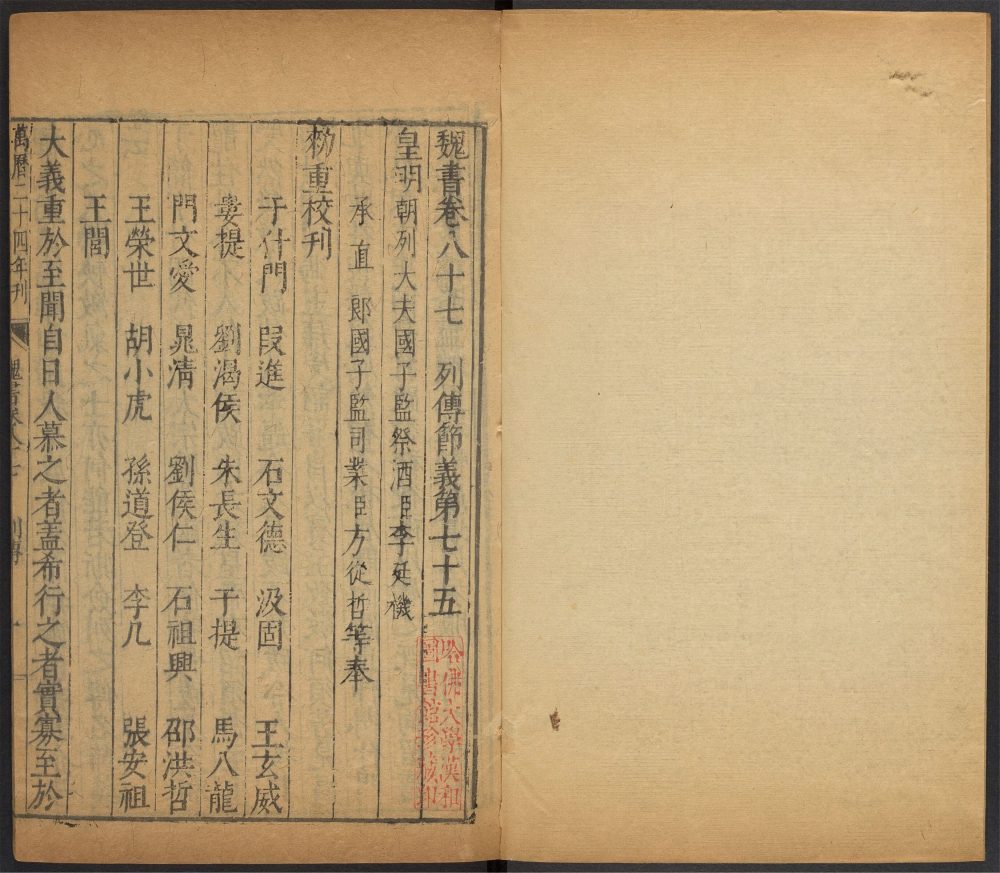 魏書卷八十七 列傳節義第七十五
皇明朝列大夫國子監祭酒臣李廷機
承直郎國子監司業臣方從哲等奉
勑重校刊
于什門 段進 石文德 汲固 王玄威
婁提 劉渴侯 朱長生 于提 馬八龍
門文愛 晁淸 劉侯仁 石祖興 邵洪哲
王榮世 胡小虎 孫道登 李几 張安祖
王閭
大義重於至聞自日人慕之者盖希行之者實寡至於
萬曆二十四年刊 魏書卷八十七 列傳 一
哈佛大學漢和
圖書館珍藏印